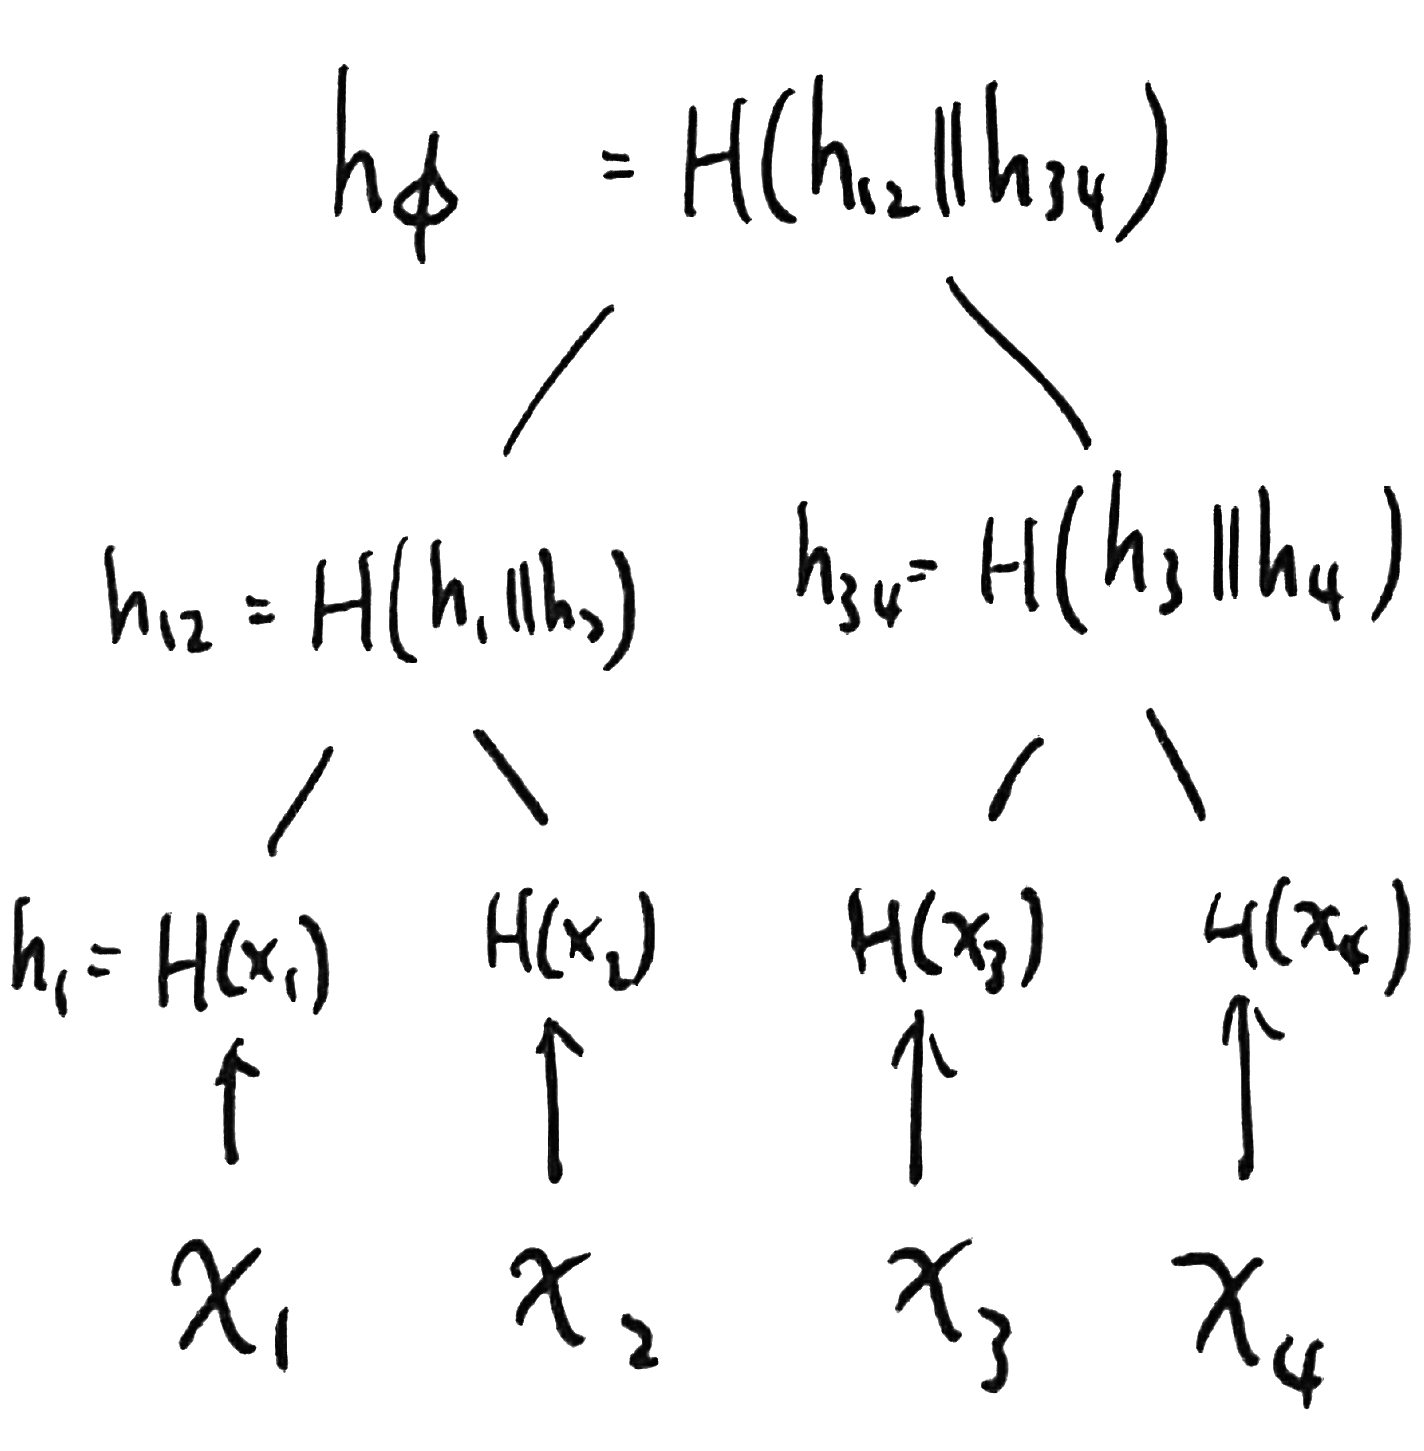 hϕ = H(h₁₂||h₃₄)
h₁₂ = H(h₁||h₂) h₃₄ = H(h₃||h₄)
h₁ = H(x₁) H(x₂) H(x₃) H(x₄)
x₁ x₂ x₃ x₄